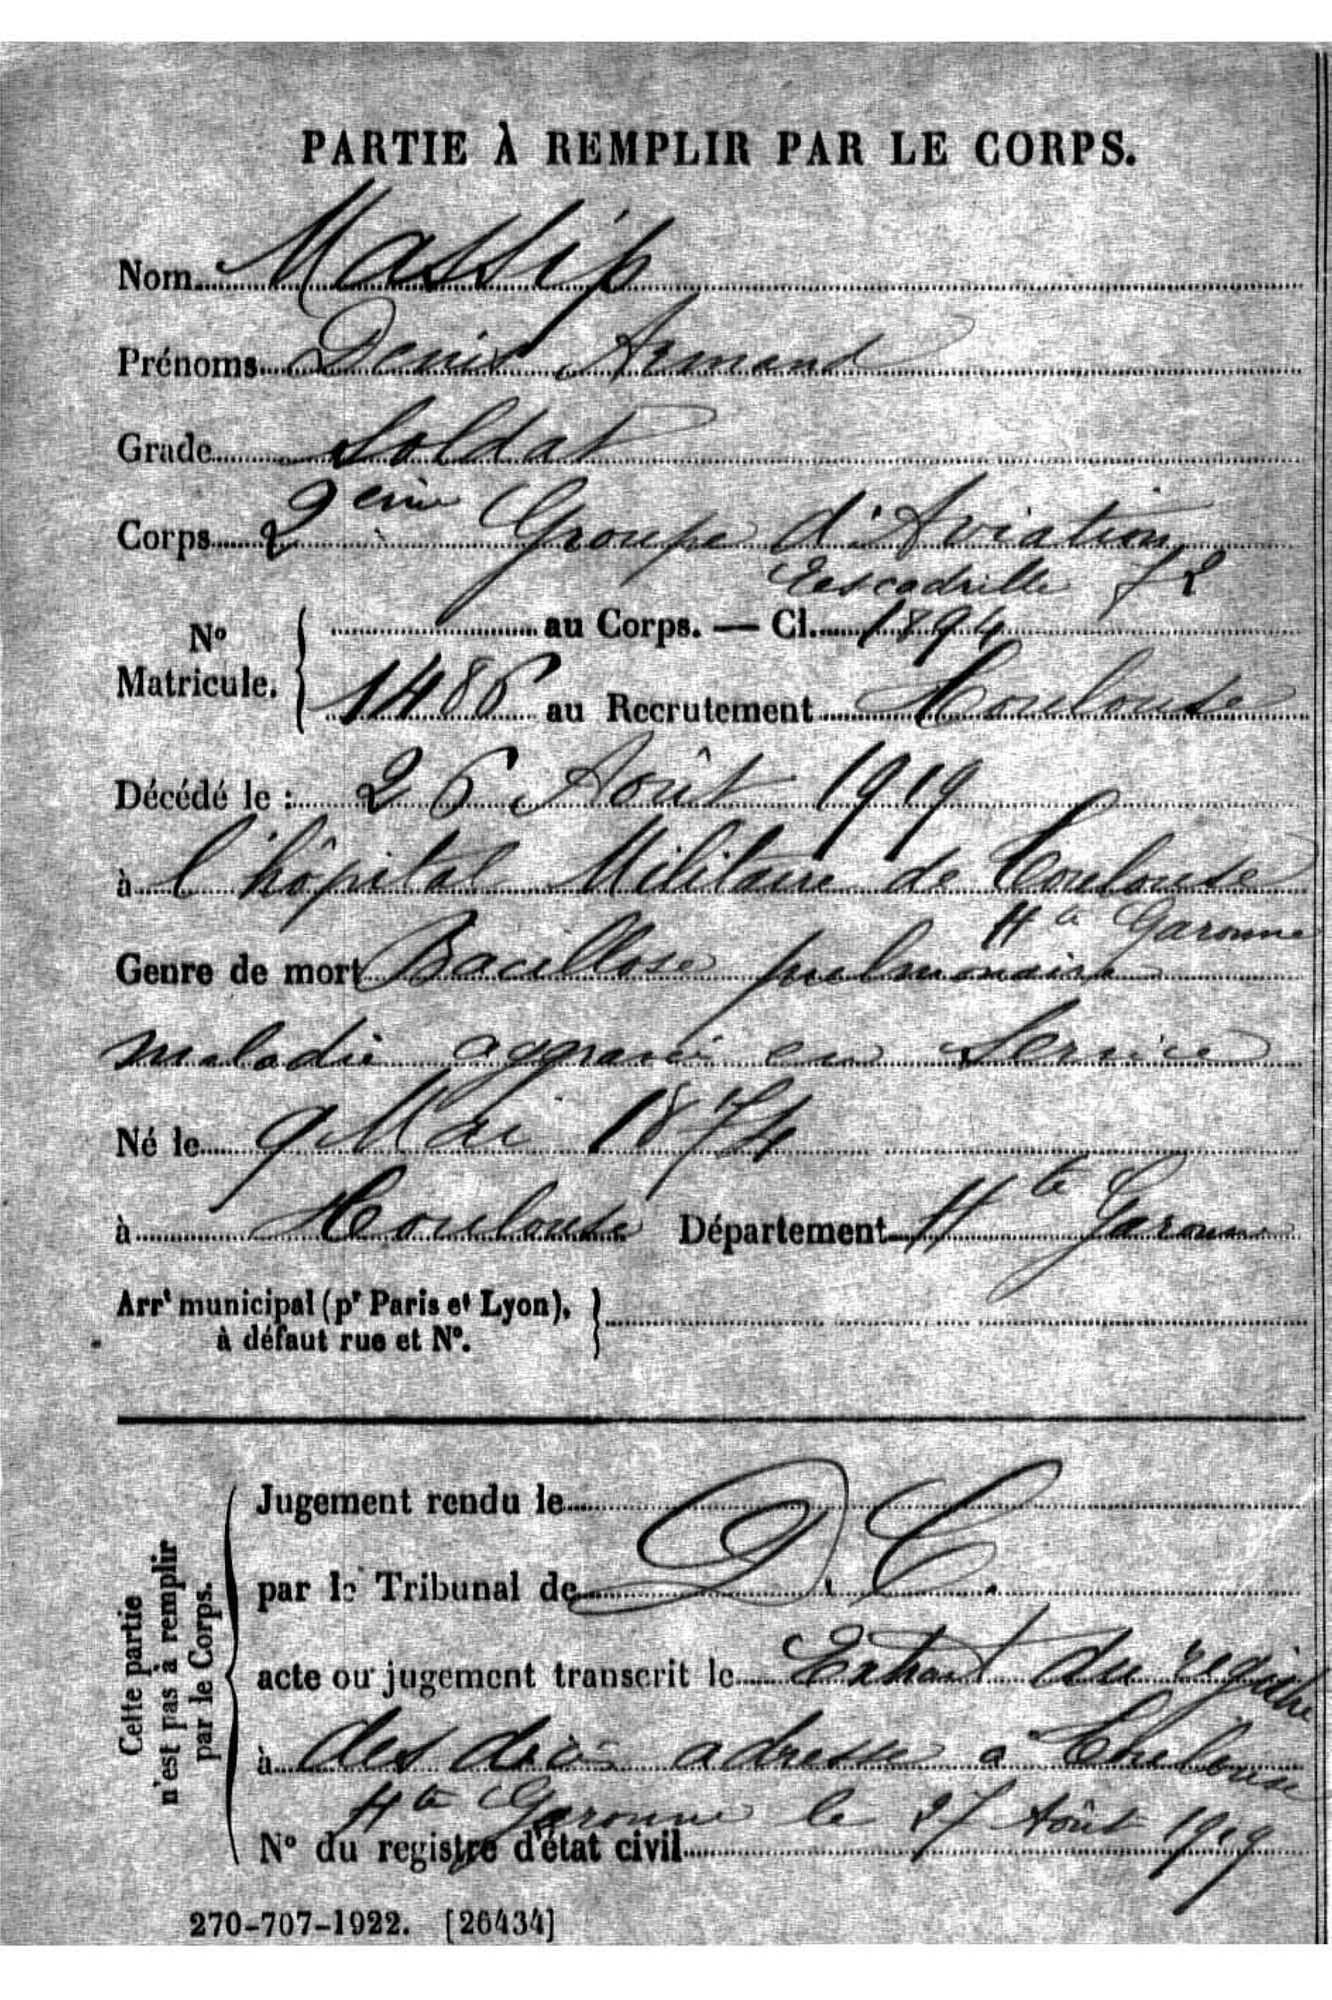 PARTIE À REMPLIR PAR LE CORPS.
Nom Massip
Prénoms Denis Armand
Grade Soldat
Corps 2ème Groupe d'Aviation
Escadrille 72
au Corps. — Cl. 1894
N° Matricule.
1486 au Recrutement Toulouse
Décédé le : 26 Août 1919
à l'hôpital Militaire de Toulouse
Hte Garonne
Genre de mort Bacillose pulmonaire
maladie aggravée en Service
Né le 9 Mai 1874
à Toulouse Département Hte Garonne
Arrt municipal (pr Paris et Lyon),
à défaut rue et N°.
Cette partie
n'est pas à remplir
par le Corps.
Jugement rendu le
par le Tribunal de D. C.
acte ou jugement transcrit le Extrait du registre
à des décès adressé à Toulouse
Hte Garonne le 27 Août 1919
N° du registre d'état civil
270-707-1922. [26434]